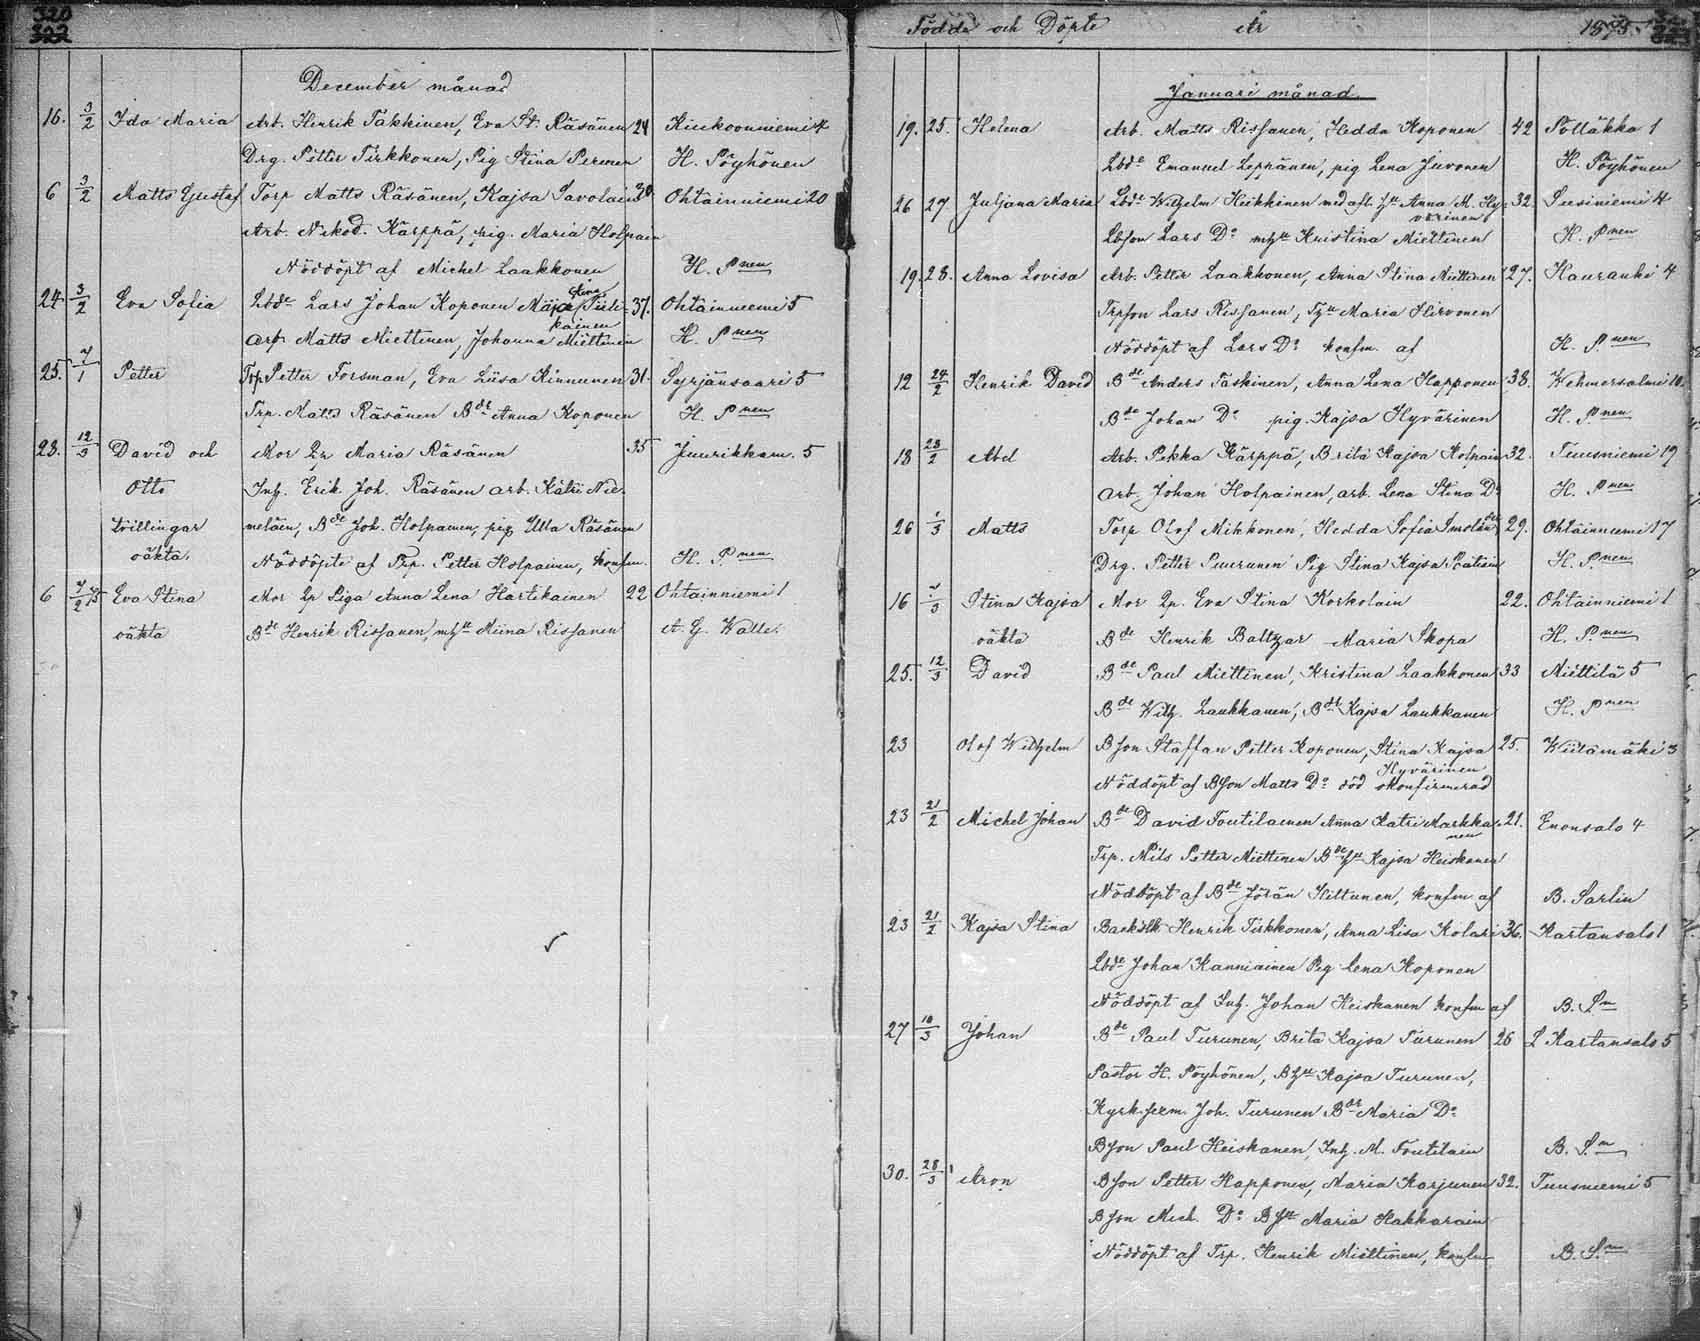 320
322
December månad
16. 3/2 Ida Maria Arb. Henrik Takkinen, Eva St. Räsänen 24 Kiukoonniemi 4
Drg. Petter Tirkkonen, Pig Stina Permen H. Pöyhönen
6 3/2 Matts Gustaf Torp Matts Räsänen, Kajsa Savolain 30. Ohtainniemi 20
Arb. Nikod. Kärppä, pig. Maria Holpain
Nöddöpt af Michel Laakkonen H. Pnen
24 3/2 Eva Sofia Lbde Lars Johan Koponen Maja Stina Piili- 37. Ohtainniemi 5
kainen
Arb Matts Miettinen, Johanna Miettinen H. Pnen
25. 7/1 Petter Trp Petter Forsman, Eva Liisa Kinnunen 31. Syrjänsaari 5
Trp. Matts Räsänen Bde Anna Koponen H. Pnen
28. 12/3 David och Mor Maria Räsänen 35 Juurikkam. 5
Otto Inh. Erik Joh. Räsänen arb. Katri Nie-
tvillingar meläin, Bde Joh. Holpainen, pig Ulla Räsänen
oäkta. Nöddöpte af Trp. Petter Holpainen, konfm. H. Pnen
6 7/2 75 Eva Stina Mor Lp Piga Anna Lena Hartikainen 22 Ohtainniemi 1
oäkta Bde Henrik Rissanen, mhu Miina Rissanen A. G. Walle.
Födde och Döpte År 1875.
Januari månad
19. 25. Helena Arb. Matts Rissanen, Hedda Koponen 42 Pölläkkä 1
Lbde Emanuel Leppänen, pig Lena Juvonen H. Pöyhönen
26 27 Juljana Maria Lbde Wilhelm Heikkinen med afl. hu Anna M. Hy- 32. Susiniemi 4
värinen
Lbson Lars Do mhu Kristina Miettinen H. Pnen
19. 28. Anna Lovisa Arb. Petter Laakkonen, Anna Stina Miettinen 27. Hauranki 4
Trpson Lars Rissanen, Maria Hirvonen
Nöddöpt af Lars Do konfm. af H. Pnen
12 24/2 Henrik David Bde Anders Taskinen, Anna Lena Happonen 38. Wehmersalmi 10.
Bde Johan Do pig. Kajsa Hyvärinen H. Pnen
18 28/2 Abel Arb. Pekka Kärppä, Brita Kajsa Holpain 32. Tuusniemi 19
Arb. Johan Holpainen, arb. Lena Stina Do H. Pnen
26 1/3 Matts Torp Olof Mikkonen, Hedda Sofia 29. Ohtainniemi 17
Drg. Petter Puurunen Pig Stina Kajsa H. Pnen
16 /3 Stina Kajsa Mor Lp. Eva Stina Korkolain 22. Ohtainniemi 1
oäkta Bde Henrik Baltzar Maria Skopa H. Pnen
25. 12/3 David Bde Paul Miettinen, Kristina Laakkonen 33 Miettilä 5
Bde Wilh. Laukkanen, Bde Kajsa Laukkanen H. Pnen
23 Olof Wilhelm Bson Staffan Petter Koponen, Stina Kajsa 25. Wiitamäki 3
Hyvärinen
Nöddöpt af Bson Matts Do död okonfirmerad
23 21/2 Michel Johan Bde David Toutilainen Anna Katri Markka- 21. Enonsalo 4
nen
Trp. Nils Petter Miettinen Bde hu Kajsa Heiskanen
Nöddöpt af Bde Jöran Hiltunen, konfm af B. Sarlin
23 21/2 Kajsa Stina Backstk Henrik Tirkkonen, Anna Lisa Kolari 36. Kartansalo 1
Lbde Johan Kanniainen Pig Lena Koponen
Nöddöpt af Inh. Johan Heiskanen konfm af B. Sn
27 10/3 Johan Bde Paul Turunen, Brita Kajsa Turunen 26 L Kartansalo 5
Pastor H. Pöyhönen, Bhu Kajsa Turunen,
Kyrk.sexm. Joh. Turunen Bde Maria Do
Bson Paul Heiskanen, Inh. M. Toutilain B. Sn
30. 28/3 Aron Bson Petter Happonen, Maria Karjunen 32. Tuusniemi 5
Bson Mich. Do Bhu Maria Hakkarain
Nöddöpt af Trp. Henrik Miettinen, konfm B. Sn